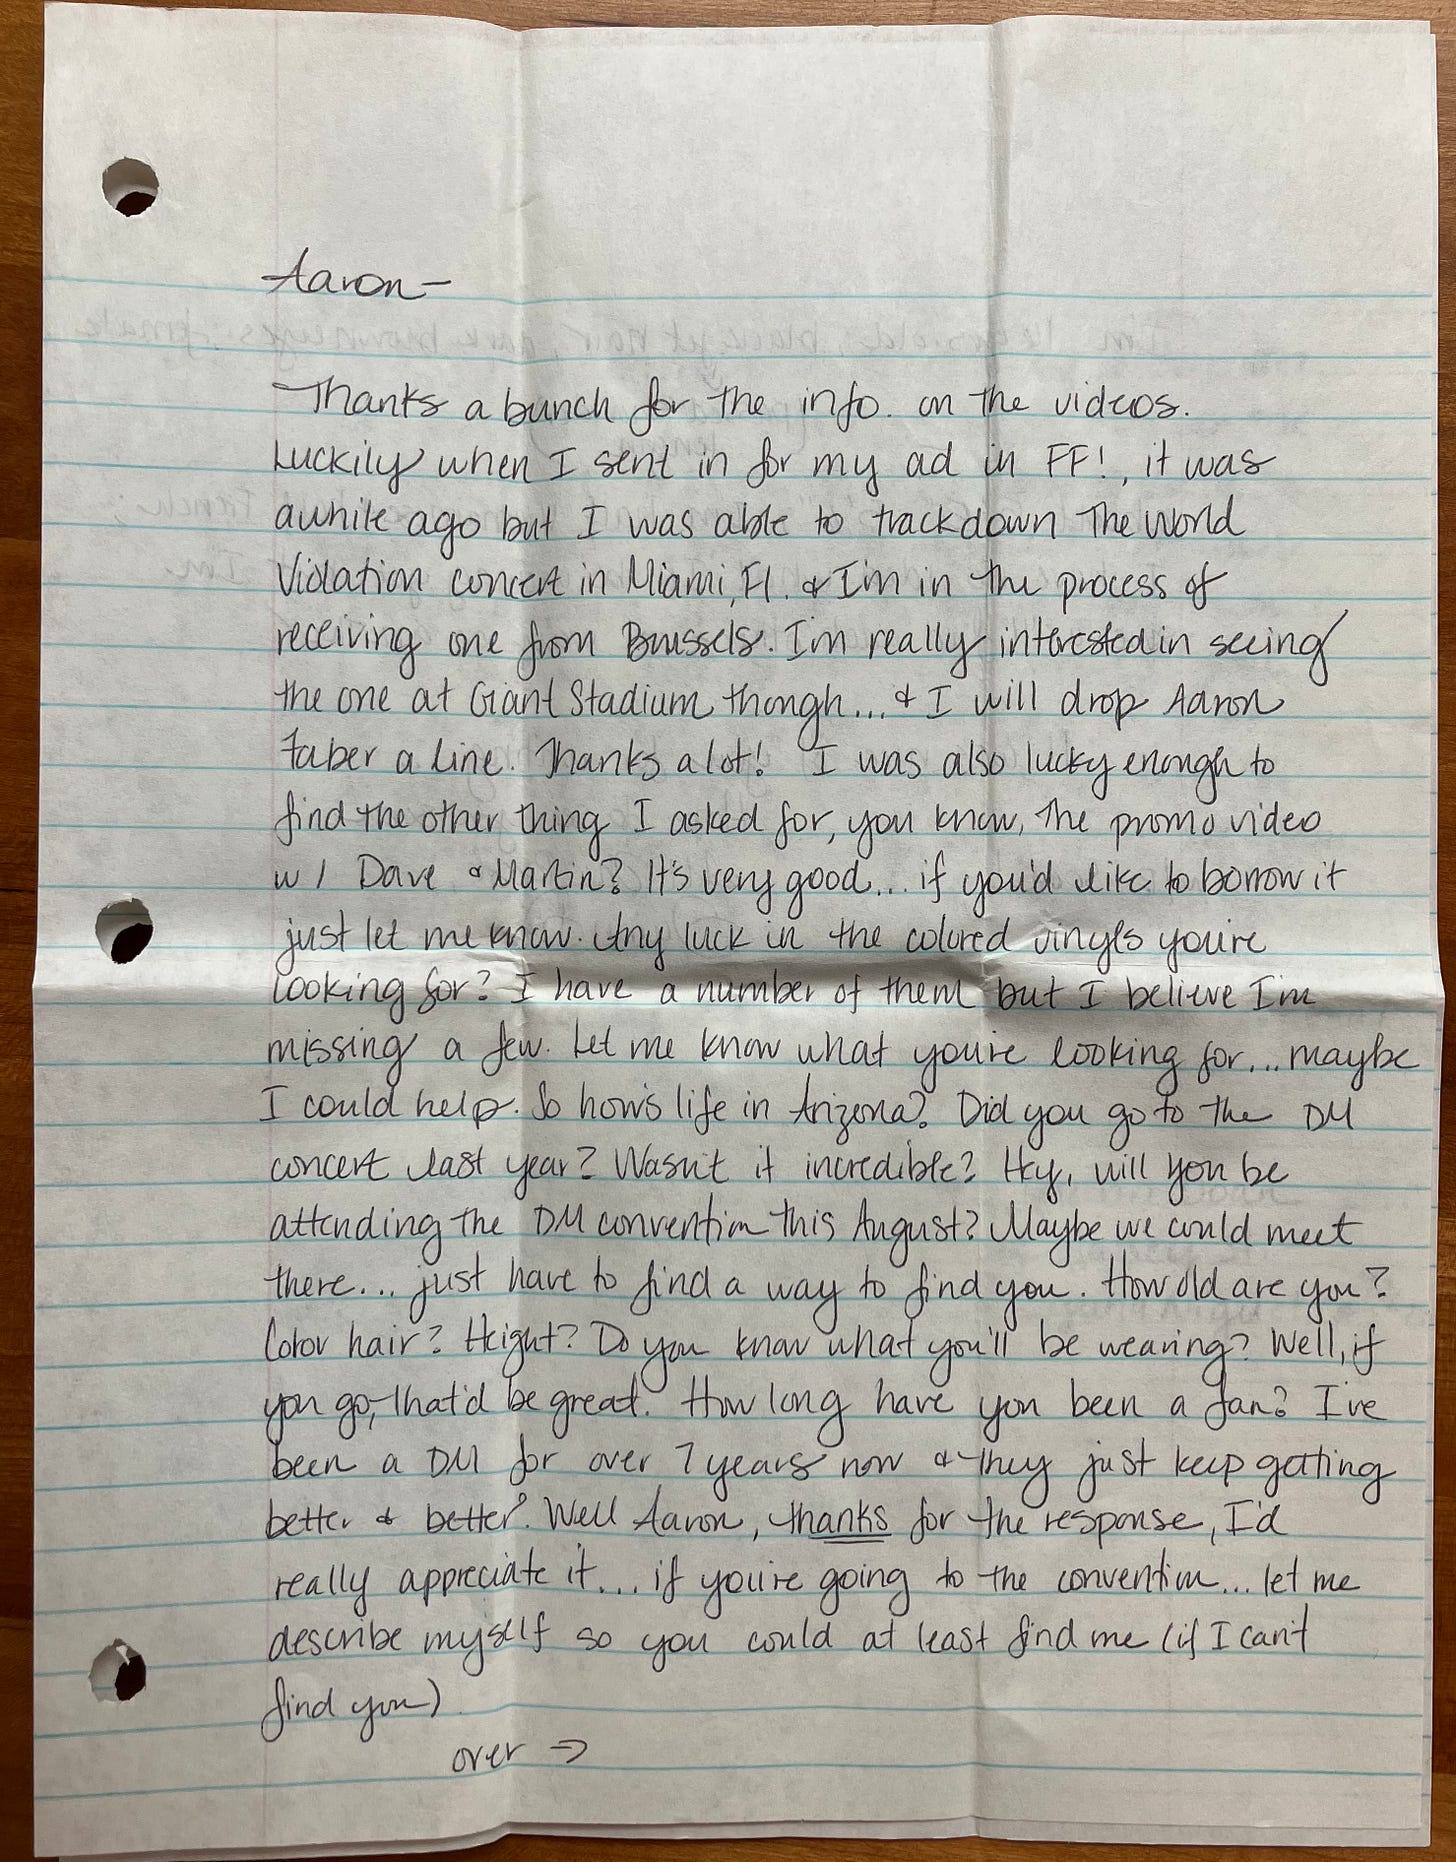 Aaron—
Thanks a bunch for the info. on the videos.
Luckily when I sent in for my ad in FF!, it was
awhile ago but I was able to trackdown the World
Violation concert in Miami, Fl. & I'm in the process of
receiving one from Brussels. I'm really interested in seeing
the one at Giant Stadium though... & I will drop Aaron
Taber a line. Thanks a lot! I was also lucky enough to
find the other thing I asked for, you know, the promo video
w/ Dave & Martin? It's very good... if you'd like to borrow it
just let me know. Any luck in the colored vinyls you're
looking for? I have a number of them but I believe I'm
missing a few. Let me know what you're looking for... maybe
I could help. So how's life in Arizona? Did you go to the DM
concert last year? Wasn't it incredible? Hey, will you be
attending the DM convention this August? Maybe we could meet
there... just have to find a way to find you. How old are you?
Color hair? Height? Do you know what you'll be wearing? Well, if
you go, that'd be great. How long have you been a fan? I've
been a DM for over 7 years now & they just keep getting
better & better. Well Aaron, thanks for the response, I'd
really appreciate it... if you're going to the convention... let me
describe myself so you could at least find me (if I can't
find you).
over →